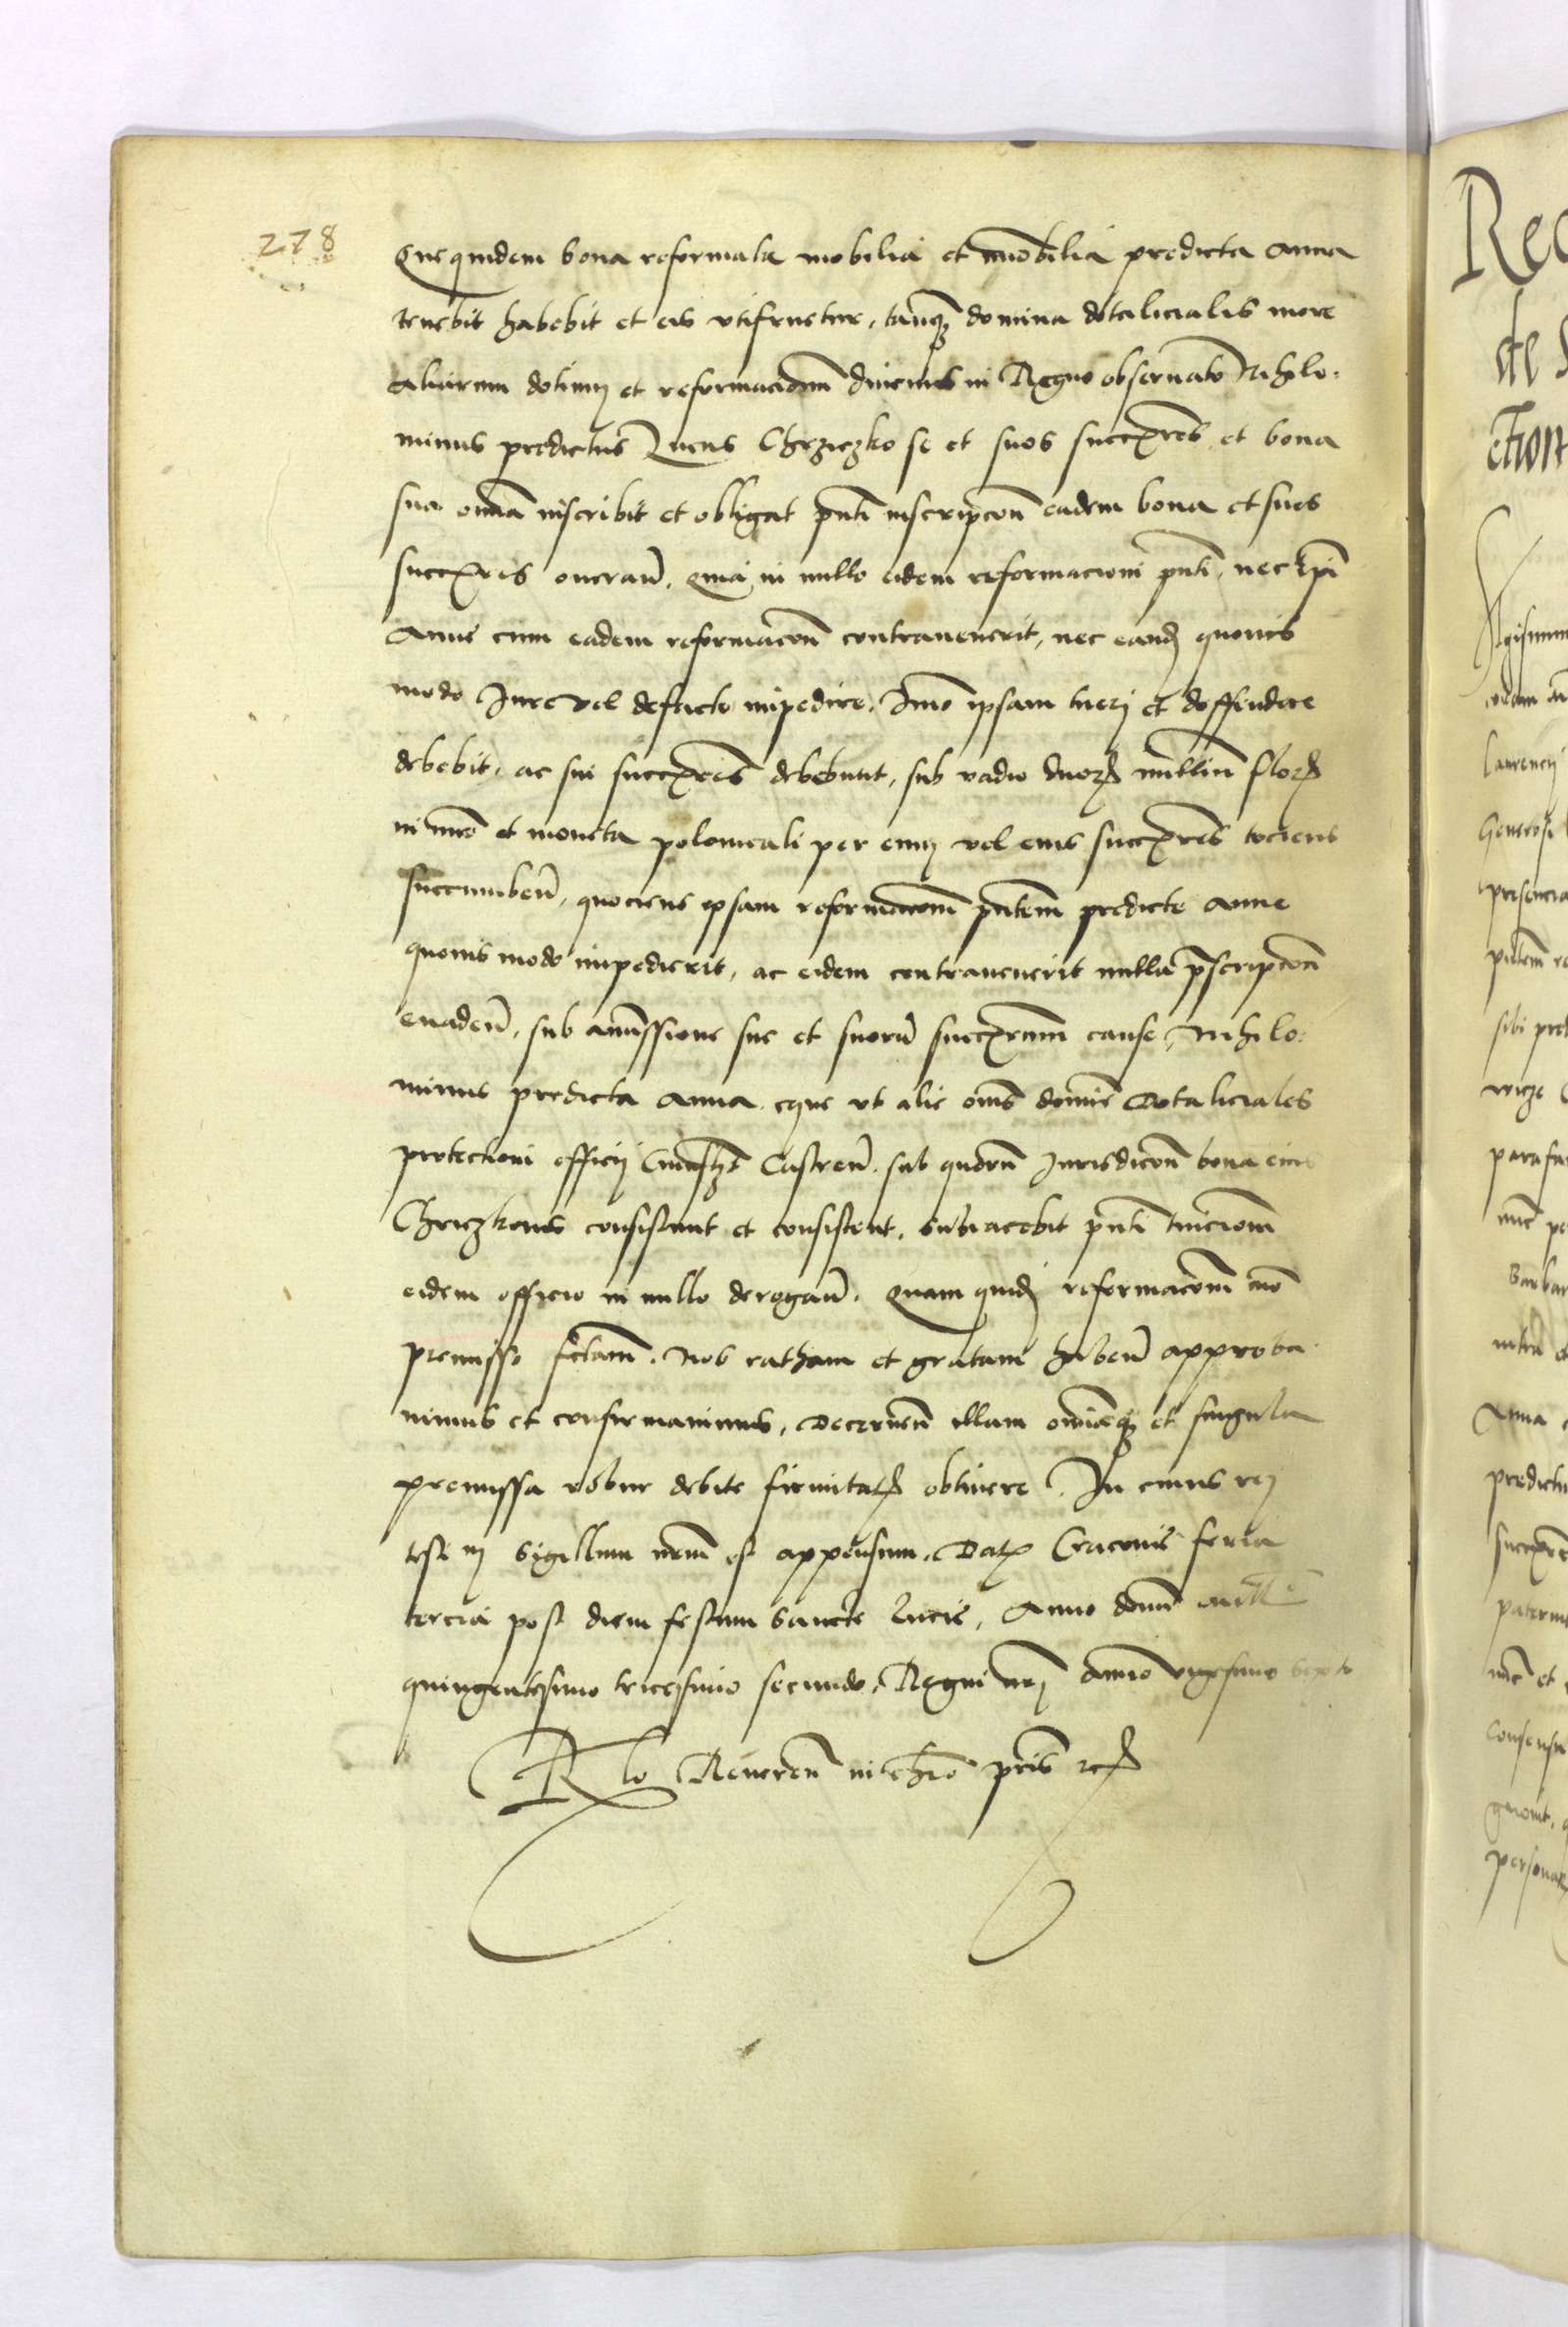 278
Que quidem bona reformata mobilia et imobilia predicta Anna
tenebit habebit et eis utifruetur, tanq domina dotalicialis more
aliarum dotium et reformacionum in Regno observato Nihilo:
minus predictus Lucas Chrziczko se et suos succres et bona
sua omnia inscribit et obligat pnti inscripcon eadem bona et suos
succres oneran. Quia in nullo eidem reformacioni pnti, nec ipi
Anne cum eadem reformacon contravenerit, nec eand quovis
modo Jure vel defacto impedire. Imo ipsam tueri et deffendere
debebit, ac sui succres debebunt, sub vadio duor millium flor
in nuo et moneta polonicali per eum vel eius succres tociens
succumben, quociens ipsam reformacom pntem predicte Anne
quovis modo impedierit, ac eidem contravenerit nulla pscripcon
evaden, sub amissione sue et suoru succrum cause, Nihilo:
minus predicta Anna eque ut alie oms domine dotaliciales
protectioni officij Castren. sub quorum Jurisdicon bona eius
Chriczkonis consistunt et consistent, subiacebit pnti
eidem officio in nullo derogan. Quam quid reformacom mo
premisso fctam. Nos ratham et gratam haben approba
vimus et confirmavimus, Decernen illam omniaq et singula
premissa robur debite firmitat obtinere. In cuius rei
testim Sigillum nrum est appensum. Dat Cracovie feria
tercia post diem festum sancte Lucie, Anno domi mill
quingentesimo tricesimo secundo, Regni nri Anno vigesimo sexto
Rlo Reveren in Chro pris
Rec
de
ction
laurencij
Generosi
presencia
pntem
sibi
parafer
nuc
Anna
predictu
succres
patern
nuc et
Consensu
personar